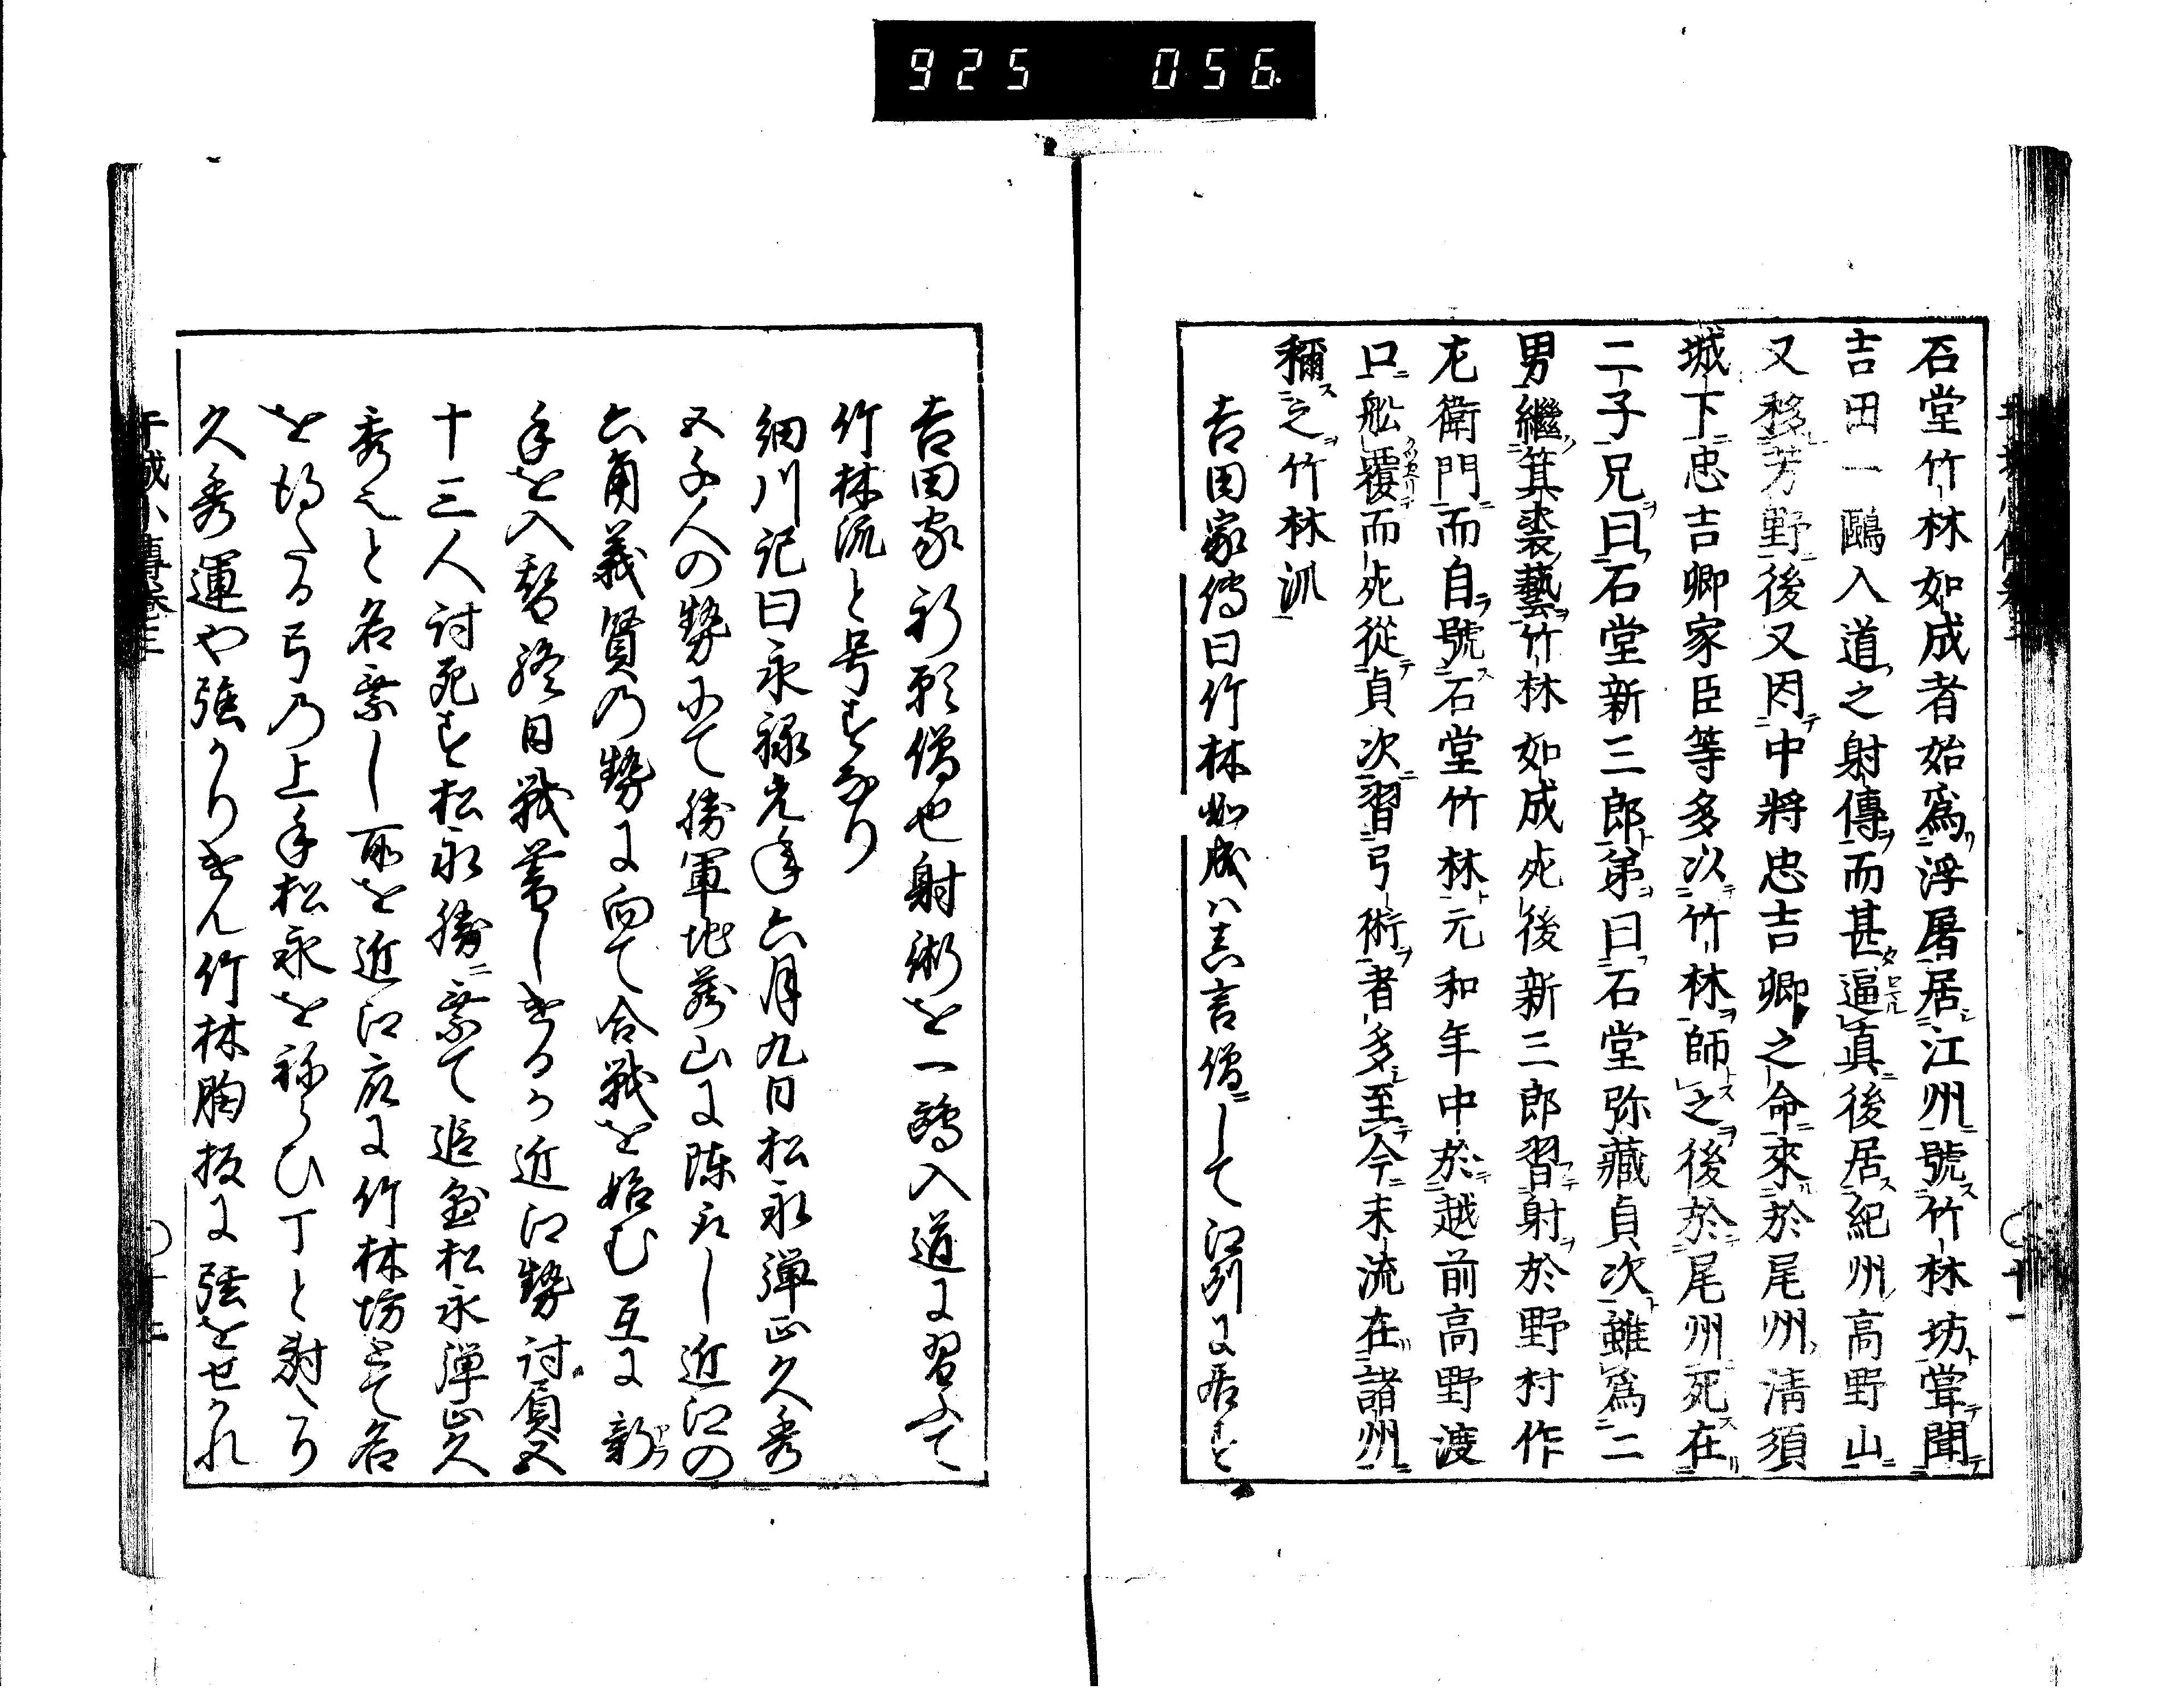 925 056
石堂竹林如成者始爲浮屠居江州號竹林坊嘗聞
吉田一鷗入道之射傳而甚逼真後居紀州高野山
又移芳野後又因中將忠吉卿之命來於尾州淸須
城下忠吉卿家臣等多以竹林師之後於尾州死在
二子兄曰石堂新三郎弟曰石堂弥藏貞次雖爲二
男繼箕裘藝竹林如成死後新三郎習射於野村作
左衛門而自號石堂竹林元和年中於越前高野渡
口舩覆而死從貞次習弓術者多至今末流在諸州
稱之竹林派
吉田家傳曰竹林如成ハ真言僧ニして江州に居す
吉田家祈願僧也射術を一鷗入道に習ふて
竹林流と号すなり
細川記曰永禄元年六月九日松永彈正久秀
五千人の勢にて勝軍地藏山に陳取し近江の
六角義賢の勢に向て合戦を始む互に新
手を入替終日戦暮しけるか近江勢討負又
十三人討死す松永勝ニ乗て追
松永彈正久
秀と名乗し所を近江
に竹林坊とて名
を得たる弓の上手松永をねらひ丁と射たり
久秀運や強かりけん竹林胸板に弦をせかれ